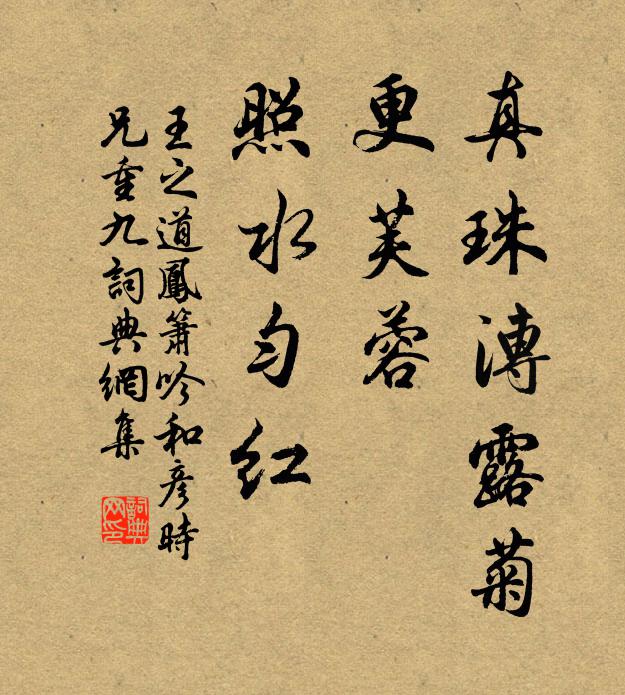 真珠漙露菊
更芙蓉
照水匀红
王之道鳳簫吟和彦時
兄重九詞典網集
詞典
网印